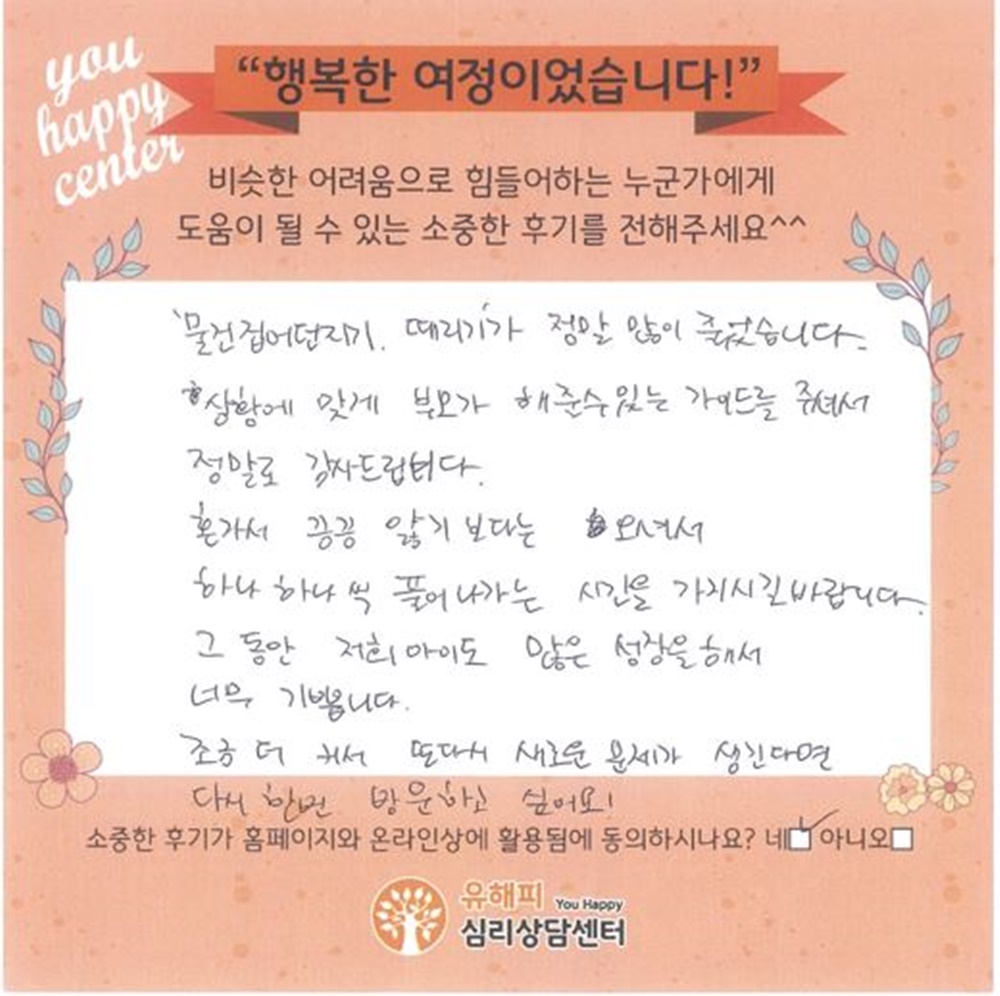 you
happy
center
“행복한 여정이었습니다!”
비슷한 어려움으로 힘들어하는 누군가에게
도움이 될 수 있는 소중한 후기를 전해주세요^^
'물건집어던지기. 때리기'가 정말 많이 줄었습니다.
상황에 맞게 부모가 해준수있는 가이드를 주셔서
정말로 감사드립니다.
혼가서 끙끙 앓기 보다는 오셔서
하나 하나 씩 풀어나가는 시간을 가지시길바랍니다.
그 동안 저희아이도 많은 성장을해서
너무 기쁩니다.
조금 더 커서 또다시 새로운 문제가 생긴다면
다시 한번 방문하고 싶어요!
소중한 후기가 홈페이지와 온라인상에 활용됨에 동의하시나요? 네 아니오
유해피 You Happy
심리상담센터